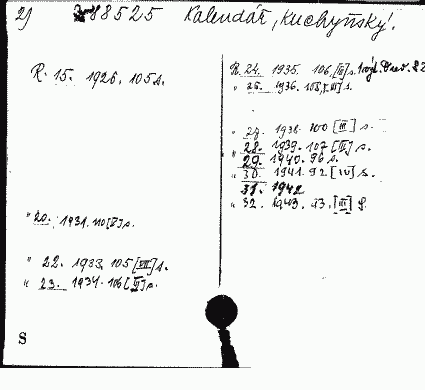 2) 88525 Kalendář, kuchyňský.
R. 15. 1926. 105 s.
" 20. 1931. 110 [V] s.
" 22. 1933. 105 [VII] s.
" 23. 1934. 106 [V] s.
R. 24. 1935. 106, [III] s.
" 25. 1936. 108, [III] s.
" 27. 1938. 100 [III] s.
" 28. 1939. 107 [II] s.
" 29. 1940. 96 s.
" 30. 1941. 92 [IV] s.
31. 1942
" 32. 1943. 93. [III] s.
S